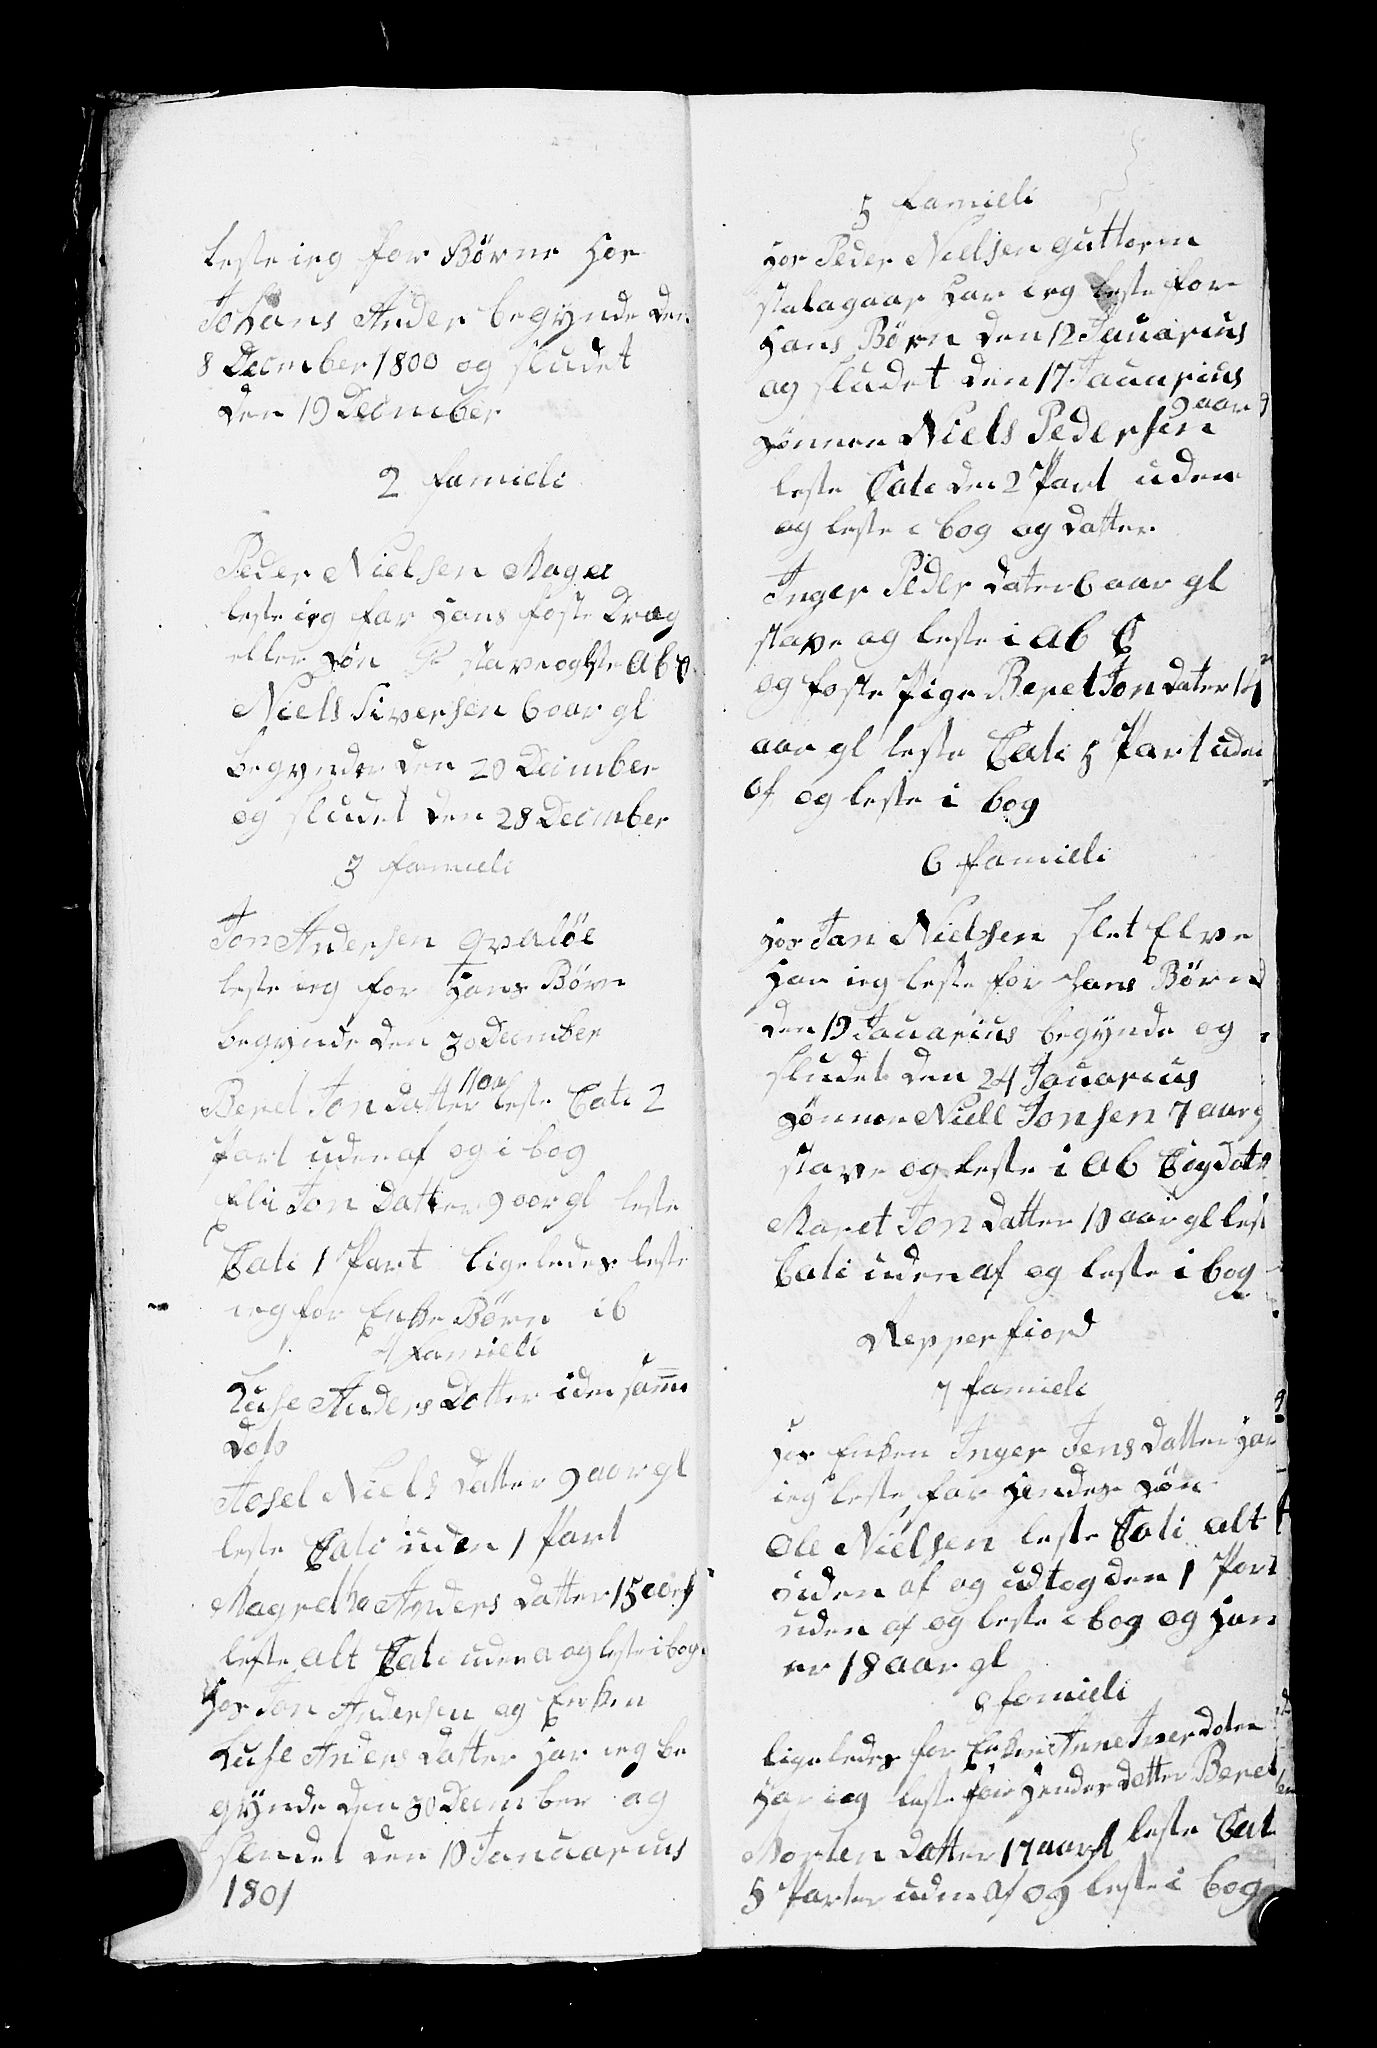 leste ieg for Børne hos
Johans Ander begynde den
8 Decmber 1800 og sludet
den 19 Decmber
2 famieli
Peder Nielsen Mager
leste ieg far hans foste Drag
eller søn stave og leste ab c
Niels Siversen 6 aar gl
begynder den 20 Decimber
og sludet den 28 Decmber
3 famieli
Jon Andersen qvaløe
leste ieg for hans Børn
begynde den 30 Decmber
11 aar
Beret Jon datter leste Cati 2
Part uden af og i bog
Eli Jon Datter 9 aar gl leste
Cati 1 Part ligeledes leste
ieg for Enke Børn ib
4 famieli
Luse Anders Datter i den samme
Aesel Niels Datter 9 aar gl
leste Cati uden 1 Part
Magretha Anders Datter 15 aar
leste alt Cati uden a og leste i bog
hos Jon Andersen og Enken
Luse Anders Datter har ieg be
gynde den 30 Decmber og
sludet den 10 Januarius
1801
5 famieli
hos Peder Nielsen guttorm
stalagaar har ieg leste for
hans Børn den 12 Januarius
og sludet den 17 Januarius
9 aar
sønnen Niels Pedersen
leste Cati den 2 Part uden
og leste i bog og datter
Inger Peder Dater 6 aar gl
stave og leste i ab C
og foste Pige Beret Jon Dater 14
aar gl leste Cati 5 Part uden
af og leste i bog
6 famieli
hos Jan Nielsen slet Elve
har ieg leste for hans Børn
den 19 Januarius begynde og
sludet den 24 Januarius
sønnen Niell Jonsen 7 aar g
stave og leste i ab C og dat
Maret Jon Datter 10 aar gl lest
Cati uden af og leste i bog
Repperfiord
7 famieli
hos Enken Inger Jens Datter har
ieg leste far hendes søn
Ole Nielsen leste Cati alt
uden af og udtog den 1 Part
uden af og leste i bog og han
er 18 aar gl
8 famieli
ligeledes for Enken Anne Iver doter
har ieg leste for hendes datter Beret
Morten Datter 17 aar gl leste Cat
5 Parter uden af og leste i bog